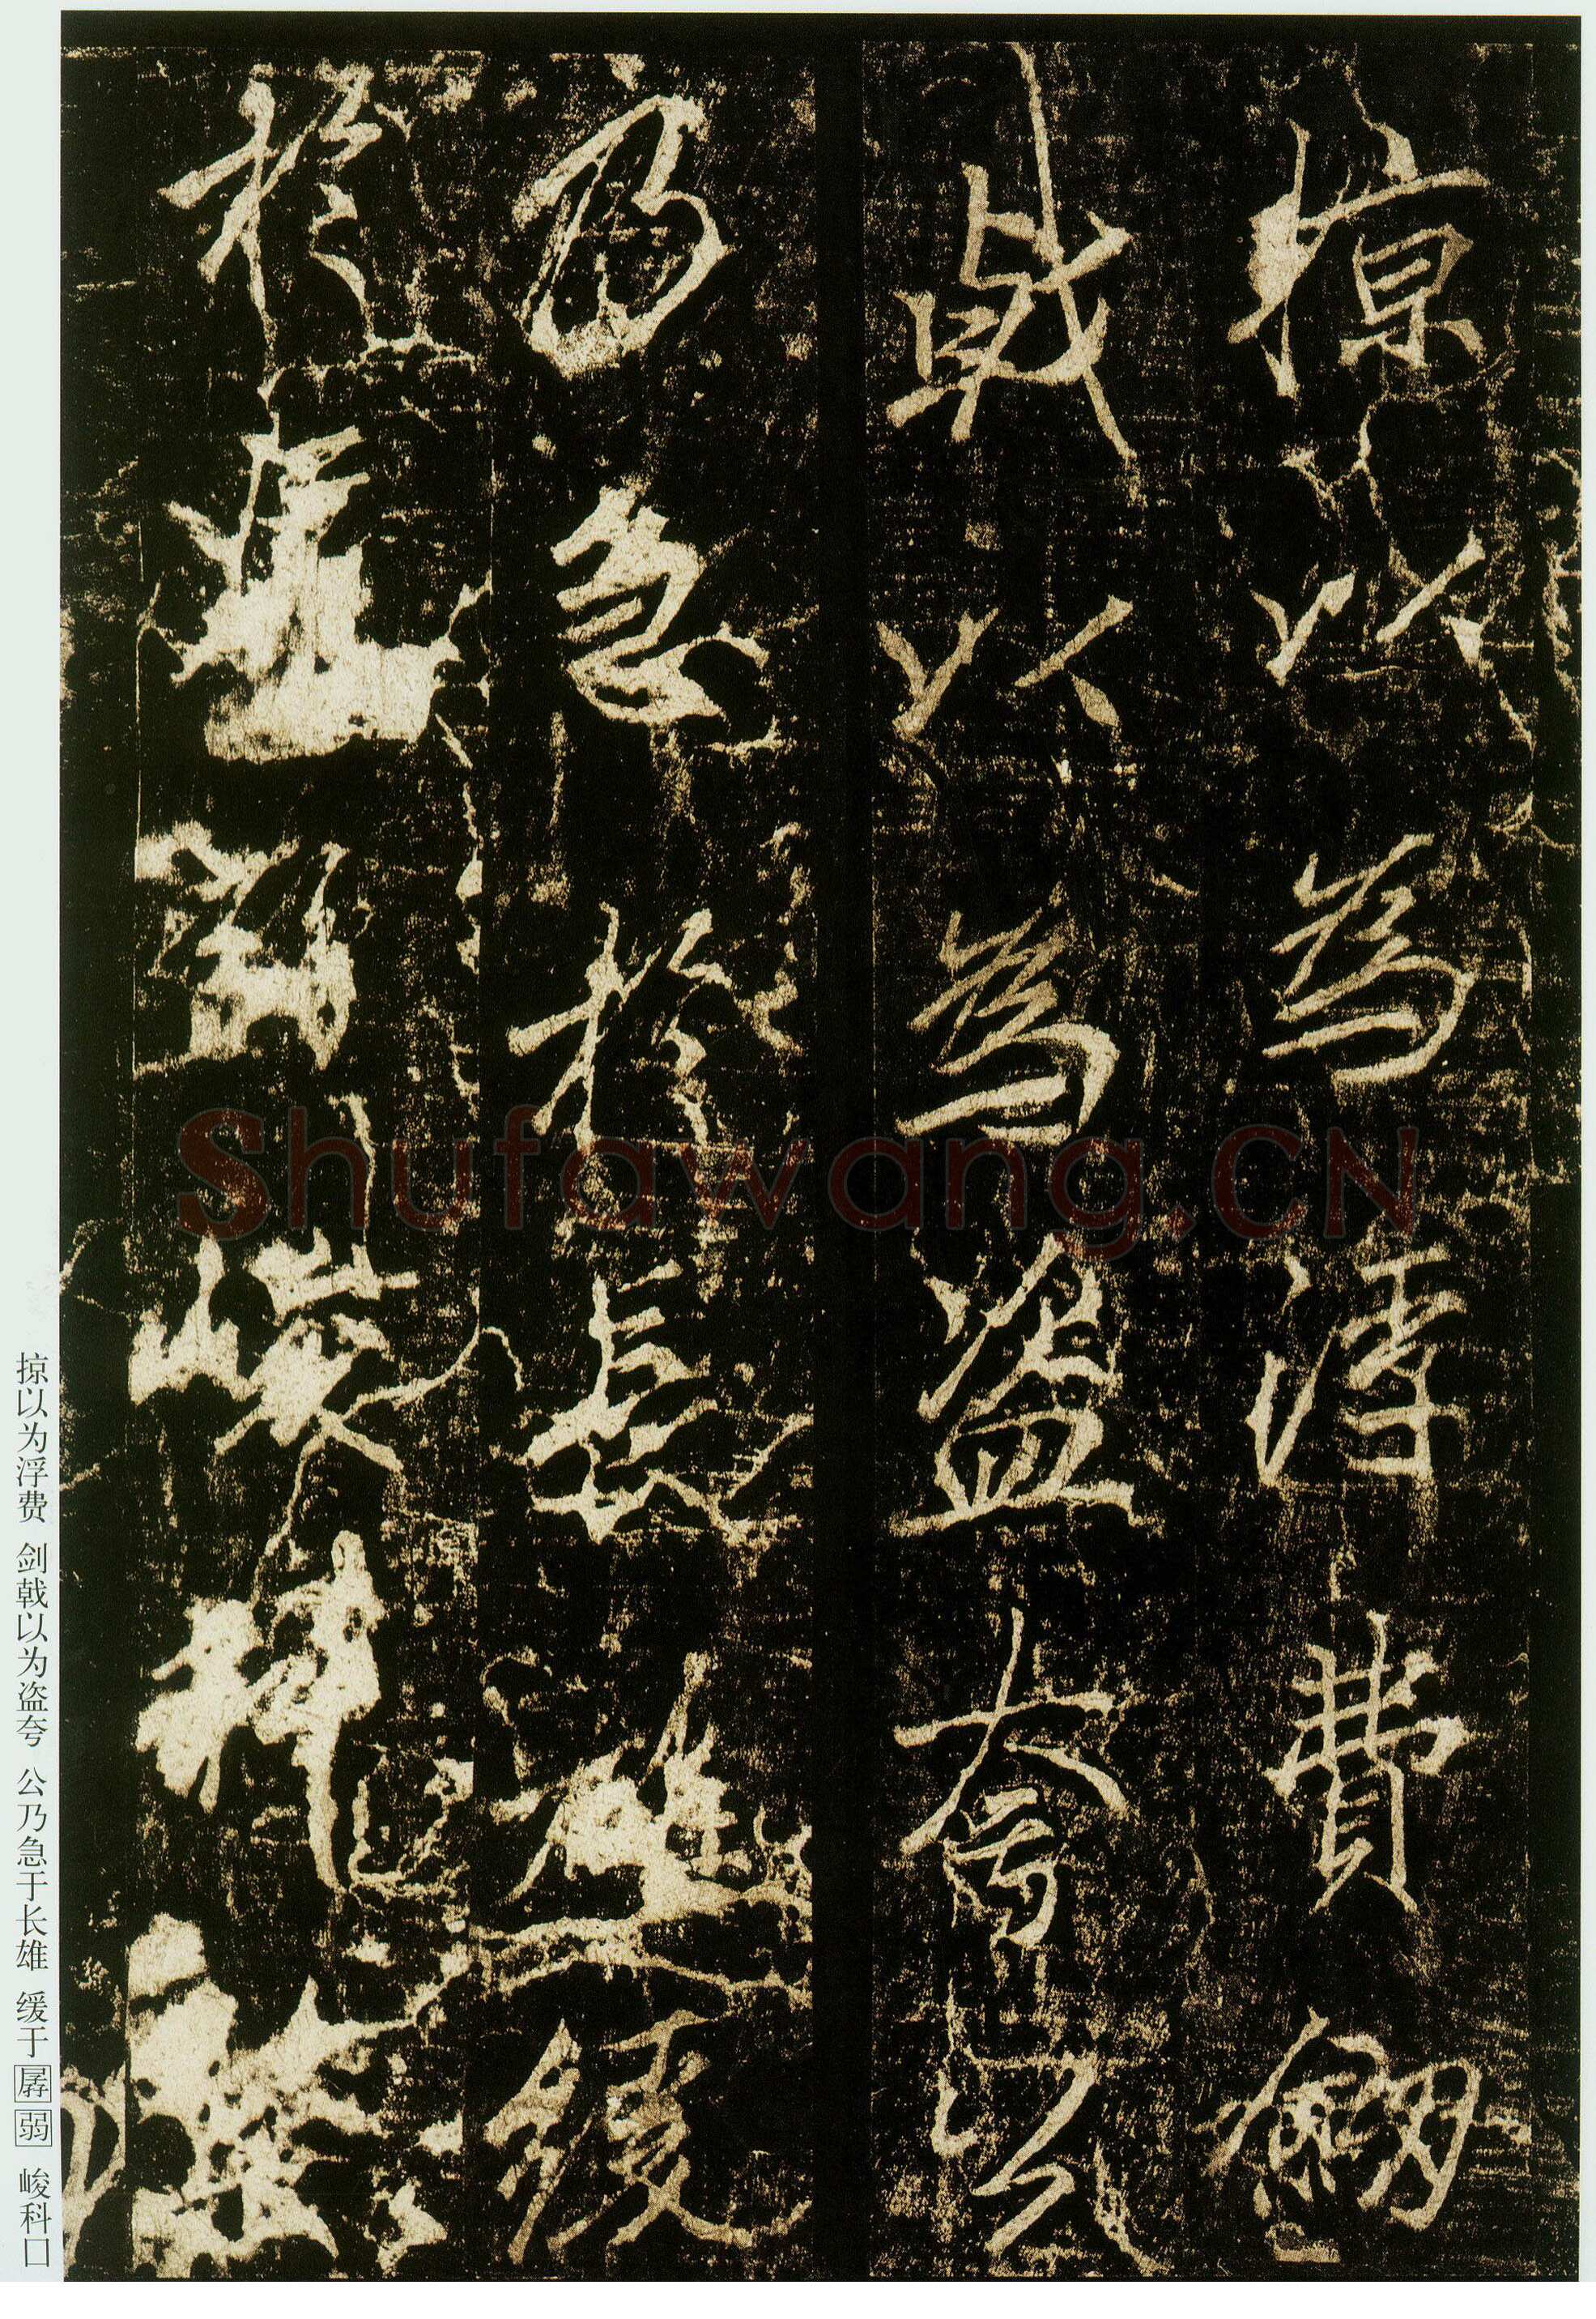 掠以為浮費劒
戟以為盗夸公
乃急於長雄緩
於峻科
Shufawang.CN
掠以为浮费 剑戟以为盗夸 公乃急于长雄 缓于孱弱 峻科口